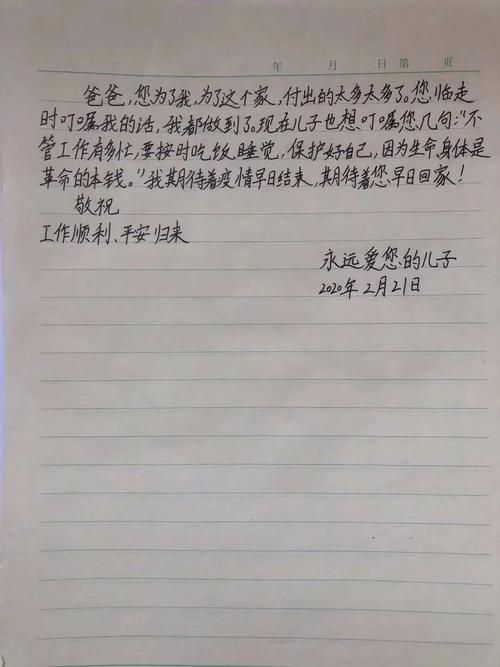 年 月 日 第 页
爸爸，您为了我，为了这个家，付出的太多太多了。您临走
时叮嘱我的话，我都做到了。现在儿子也想叮嘱您几句："不
管工作有多忙，要按时吃饭、睡觉，保护好自己，因为生命、身体是
革命的本钱。"我期待着疫情早日结束，期待着您早日回家！
敬祝
工作顺利、平安归来
永远爱您的儿子
2020年2月21日